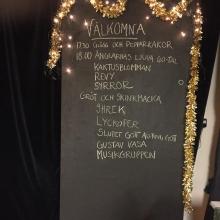 VÄLKOMNA
17.30 GLÖGG OCH PEPPARKAKOR
18.00 ÄNGLARNAS LJUVA 60-TAL
KAKTUSBLOMMAN
REVY
SYRROR
GRÖT OCH SKINKMACKA
SHREK
LYCKOPER
SLUTET GOTT ALLTING GOTT
GUSTAV VASA
MUSIKGRUPPEN